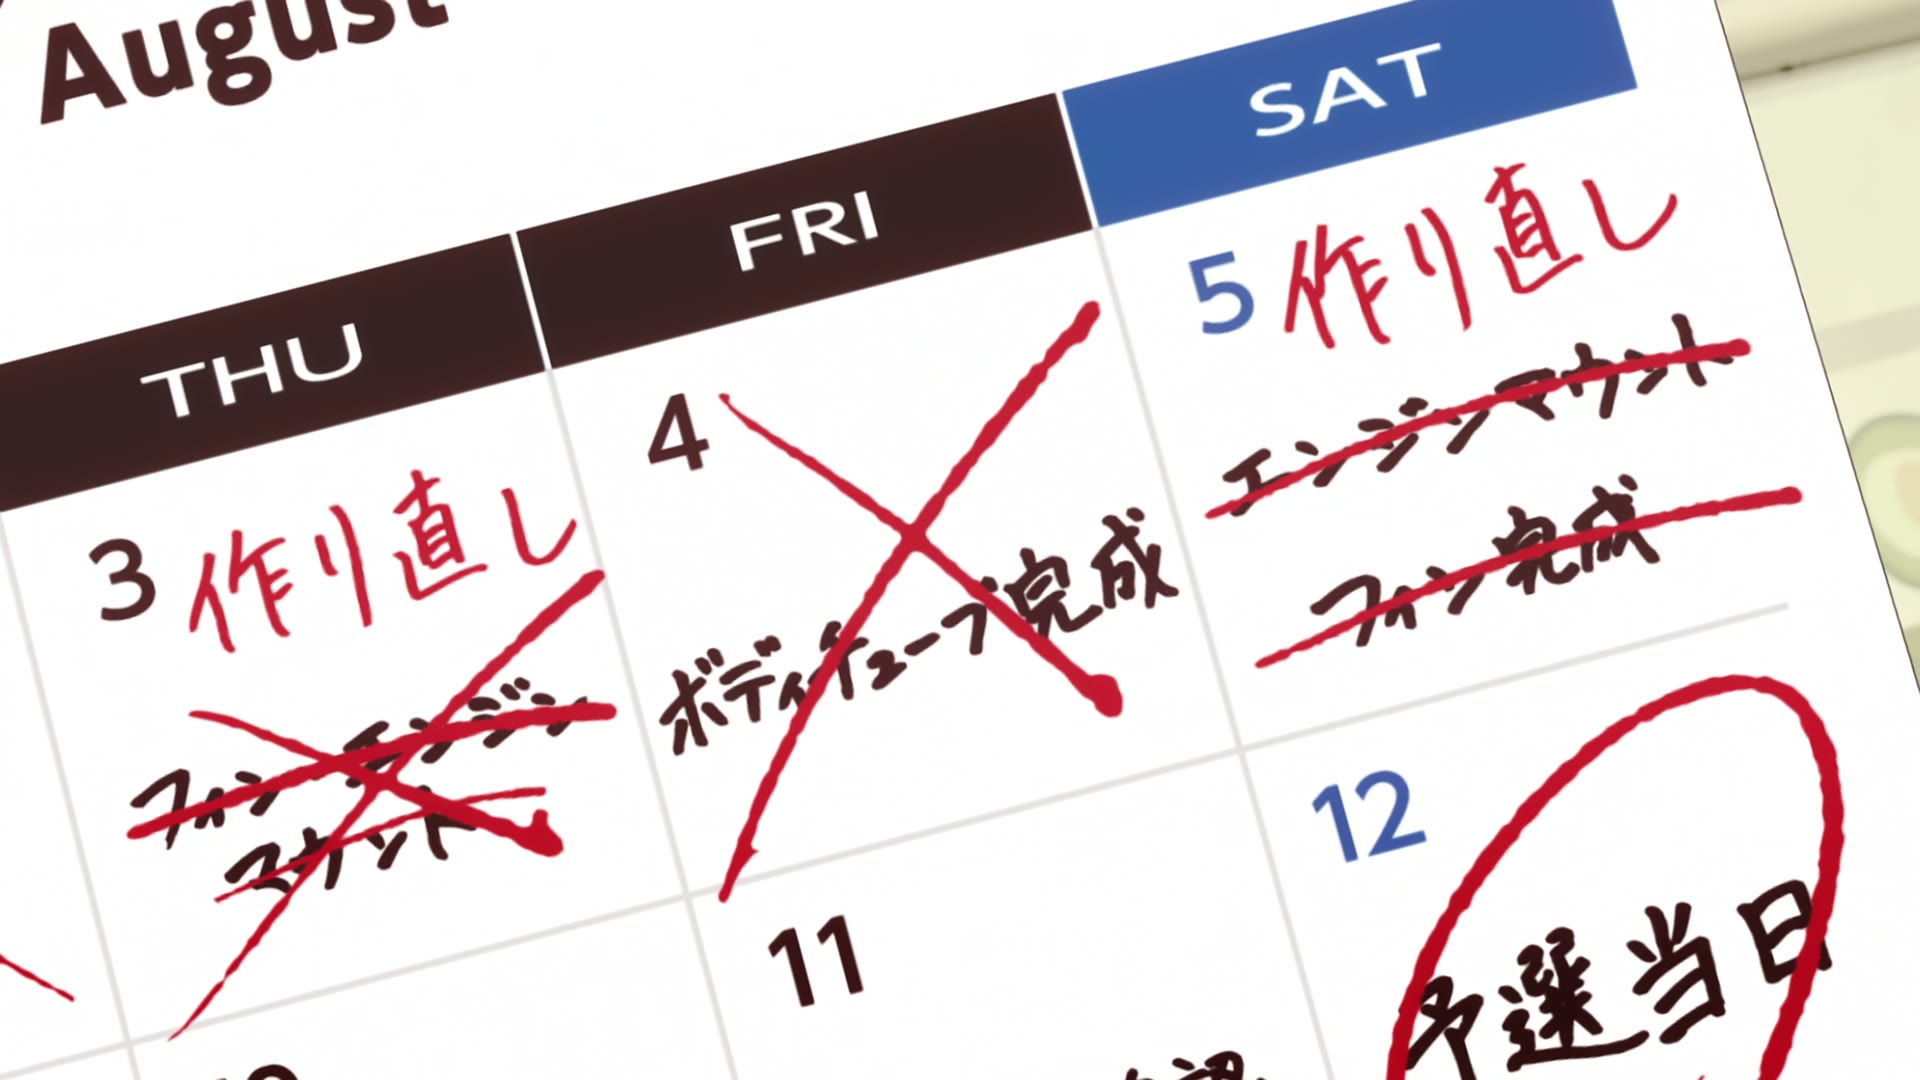 August
THU
FRI
SAT
3 作り直し
フィン エンジン
マウント
4
ボディチューブ完成
5 作り直し
エンジンマウント
フィン完成
11
12
予選当日